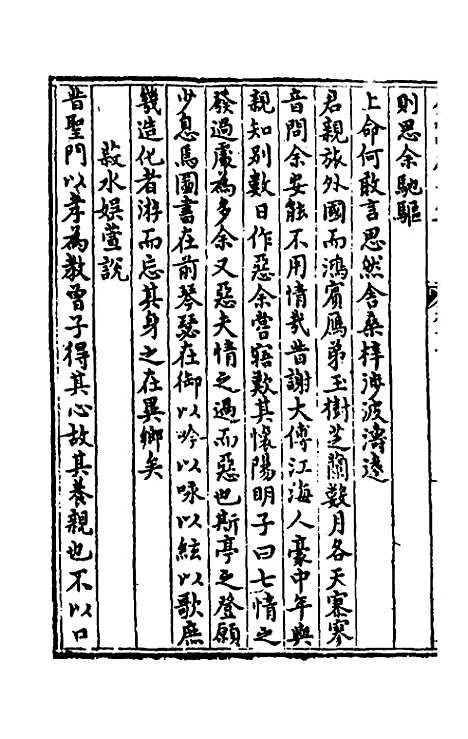 則思余馳驅
上命何敢言思然舍桑梓涉波濤遠
君親旅外國而鴻賓鴈弟玉樹芝蘭數月各天寡寥
音問余安能不用情哉昔謝大傅江海人豪中年與
親知別數日作惡余嘗竊歎其懷陽明子曰七情之
發過處為多余又惡夫情之過而惡也斯亭之登願
少息焉圖書在前琴瑟在御以吟以咏以絃以歌庶
幾造化者游而忘其身之在異鄉矣
菽水娛萱說
昔聖門以孝為教曾子得其心故其養親也不以口